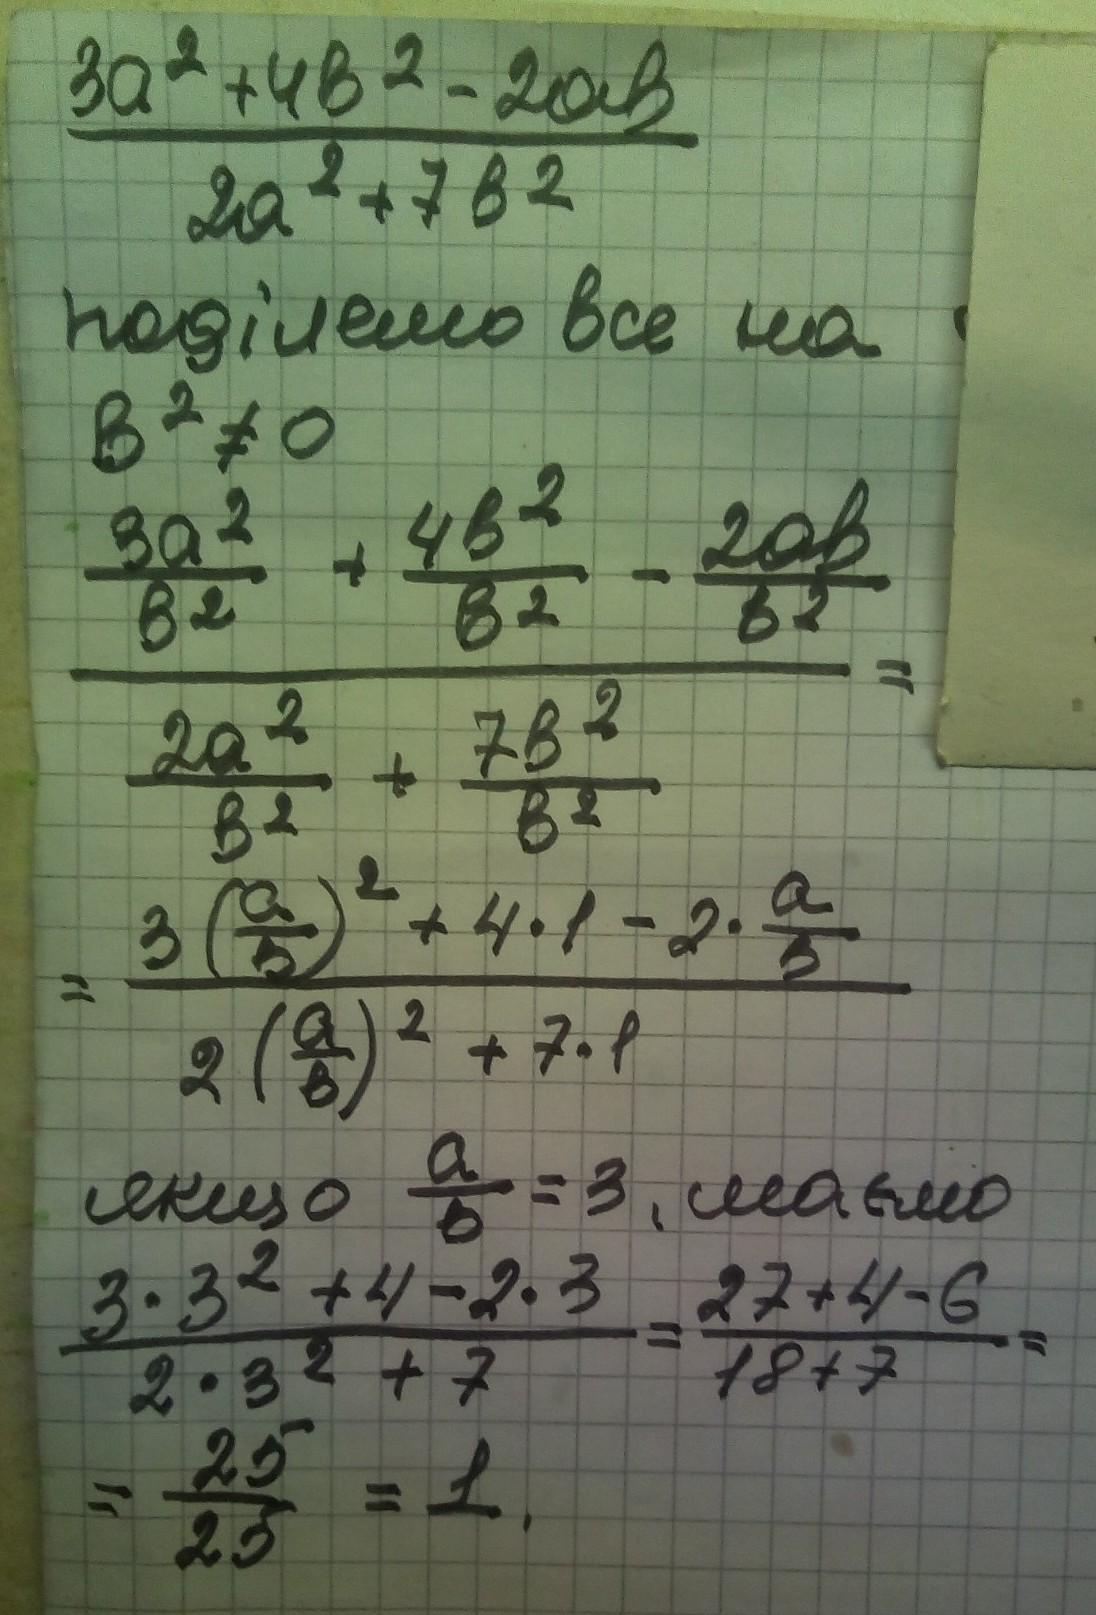 3a² + 4в² - 2ав
2a² + 7в²
поділемо все на
в² ≠ 0
3a²/в² + 4в²/в² - 2ав/в²
=
2a²/в² + 7в²/в²
= 3(a/в)² + 4·1 - 2·a/в
2(a/в)² + 7·1
якщо a/в = 3, маємо
3·3² + 4 - 2·3 = 27 + 4 - 6 =
2·3² + 7 18 + 7
= 25/25 = 1.